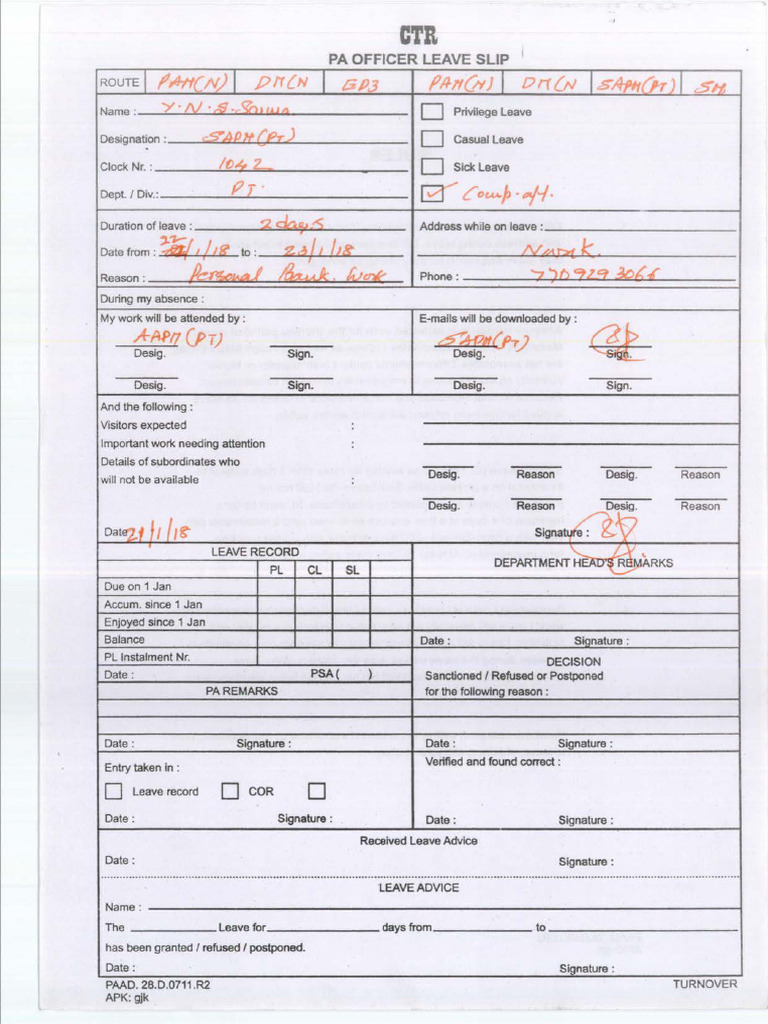 CTR
PA OFFICER LEAVE SLIP
ROUTE PAM(N) DM(N GD3 PAM(N) DM(N SAPM(PT) SM
Name : Y.N.S.
Designation : SAPM(PT)
Clock Nr. : 1042
Dept. / Div.: PT.
Privilege Leave
Casual Leave
Sick Leave
✓ Comp-off.
Duration of leave : 2 days
Date from : 22/1/18 to : 23/1/18
Reason : Personal Bank work
Address while on leave :
Nasik.
Phone : 7709293066
During my absence :
My work will be attended by :
AAPM(PT)
Desig. Sign.
Desig. Sign.
E-mails will be downloaded by :
SAPM(PT)
Desig. Sign.
Desig. Sign.
And the following :
Visitors expected :
Important work needing attention :
Details of subordinates who
will not be available :
Desig. Reason Desig. Reason
Desig. Reason Desig. Reason
Date 21/1/18
Signature :
LEAVE RECORD
PL CL SL
Due on 1 Jan
Accum. since 1 Jan
Enjoyed since 1 Jan
Balance
PL Instalment Nr.
Date : PSA ( )
DEPARTMENT HEAD'S REMARKS
Date : Signature :
DECISION
Sanctioned / Refused or Postponed
for the following reason :
PA REMARKS
Date : Signature :
Date : Signature :
Entry taken in :
Leave record COR
Date : Signature :
Verified and found correct :
Date : Signature :
Received Leave Advice
Date : Signature :
LEAVE ADVICE
Name :
The Leave for days from to
has been granted / refused / postponed.
Date : Signature :
PAAD. 28.D.0711.R2
APK: gjk
TURNOVER